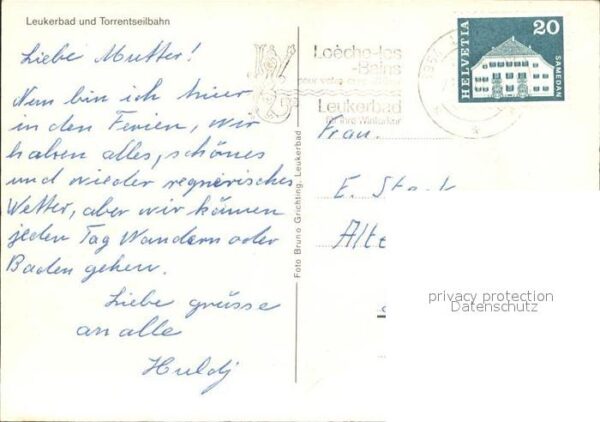 Leukerbad und Torrentseilbahn
Liebe Mutter!
Nun bin ich hier
in den Ferien, wir
haben alles, schönes
und wieder regnerisches
Wetter, aber wir können
jeden Tag Wandern oder
Baden gehen.
Liebe grüsse
an alle
Huldj
Foto Bruno Grichting, Leukerbad
Loèche-les
-Bains
Leukerbad
für Ihre Winterkur
395
HELVETIA
20
SAMEDAN
Frau.
E. Stark
Alte
privacy protection
Datenschutz